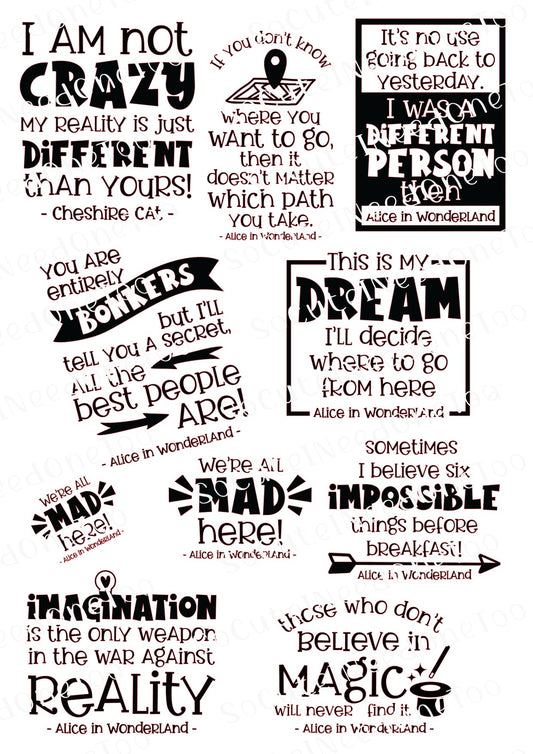 I AM not
CRAZY
MY REALITY is just
DiFFERENT
than YOURS!
- Cheshire Cat -
If you don't know
where you
want to go,
then it
doesn't matter
which path
you take.
- Alice in Wonderland -
It's no use
going back to
yesterday.
I was a
DiFFERENT
PERSON
then
Alice in Wonderland
You are
entirely
BONKERS
but I'll
tell you a secret,
All the
best people
ARE!
- Alice in Wonderland -
This is my
DREAM
I'll decide
where to go
from here
Alice in Wonderland
We're all
MAD
here!
- Alice in Wonderland -
We're all
MAD
here!
- Alice in Wonderland -
Sometimes
I believe six
iMPOSSIBLE
things before
breakfast!
Alice in Wonderland
iMAGiNATiON
is the only weapon
in the war against
Reality
- Alice in Wonderland -
those who don't
Believe in
Magic
will never find it.
- Alice in Wonderland -
SoCuteINeedOneToo